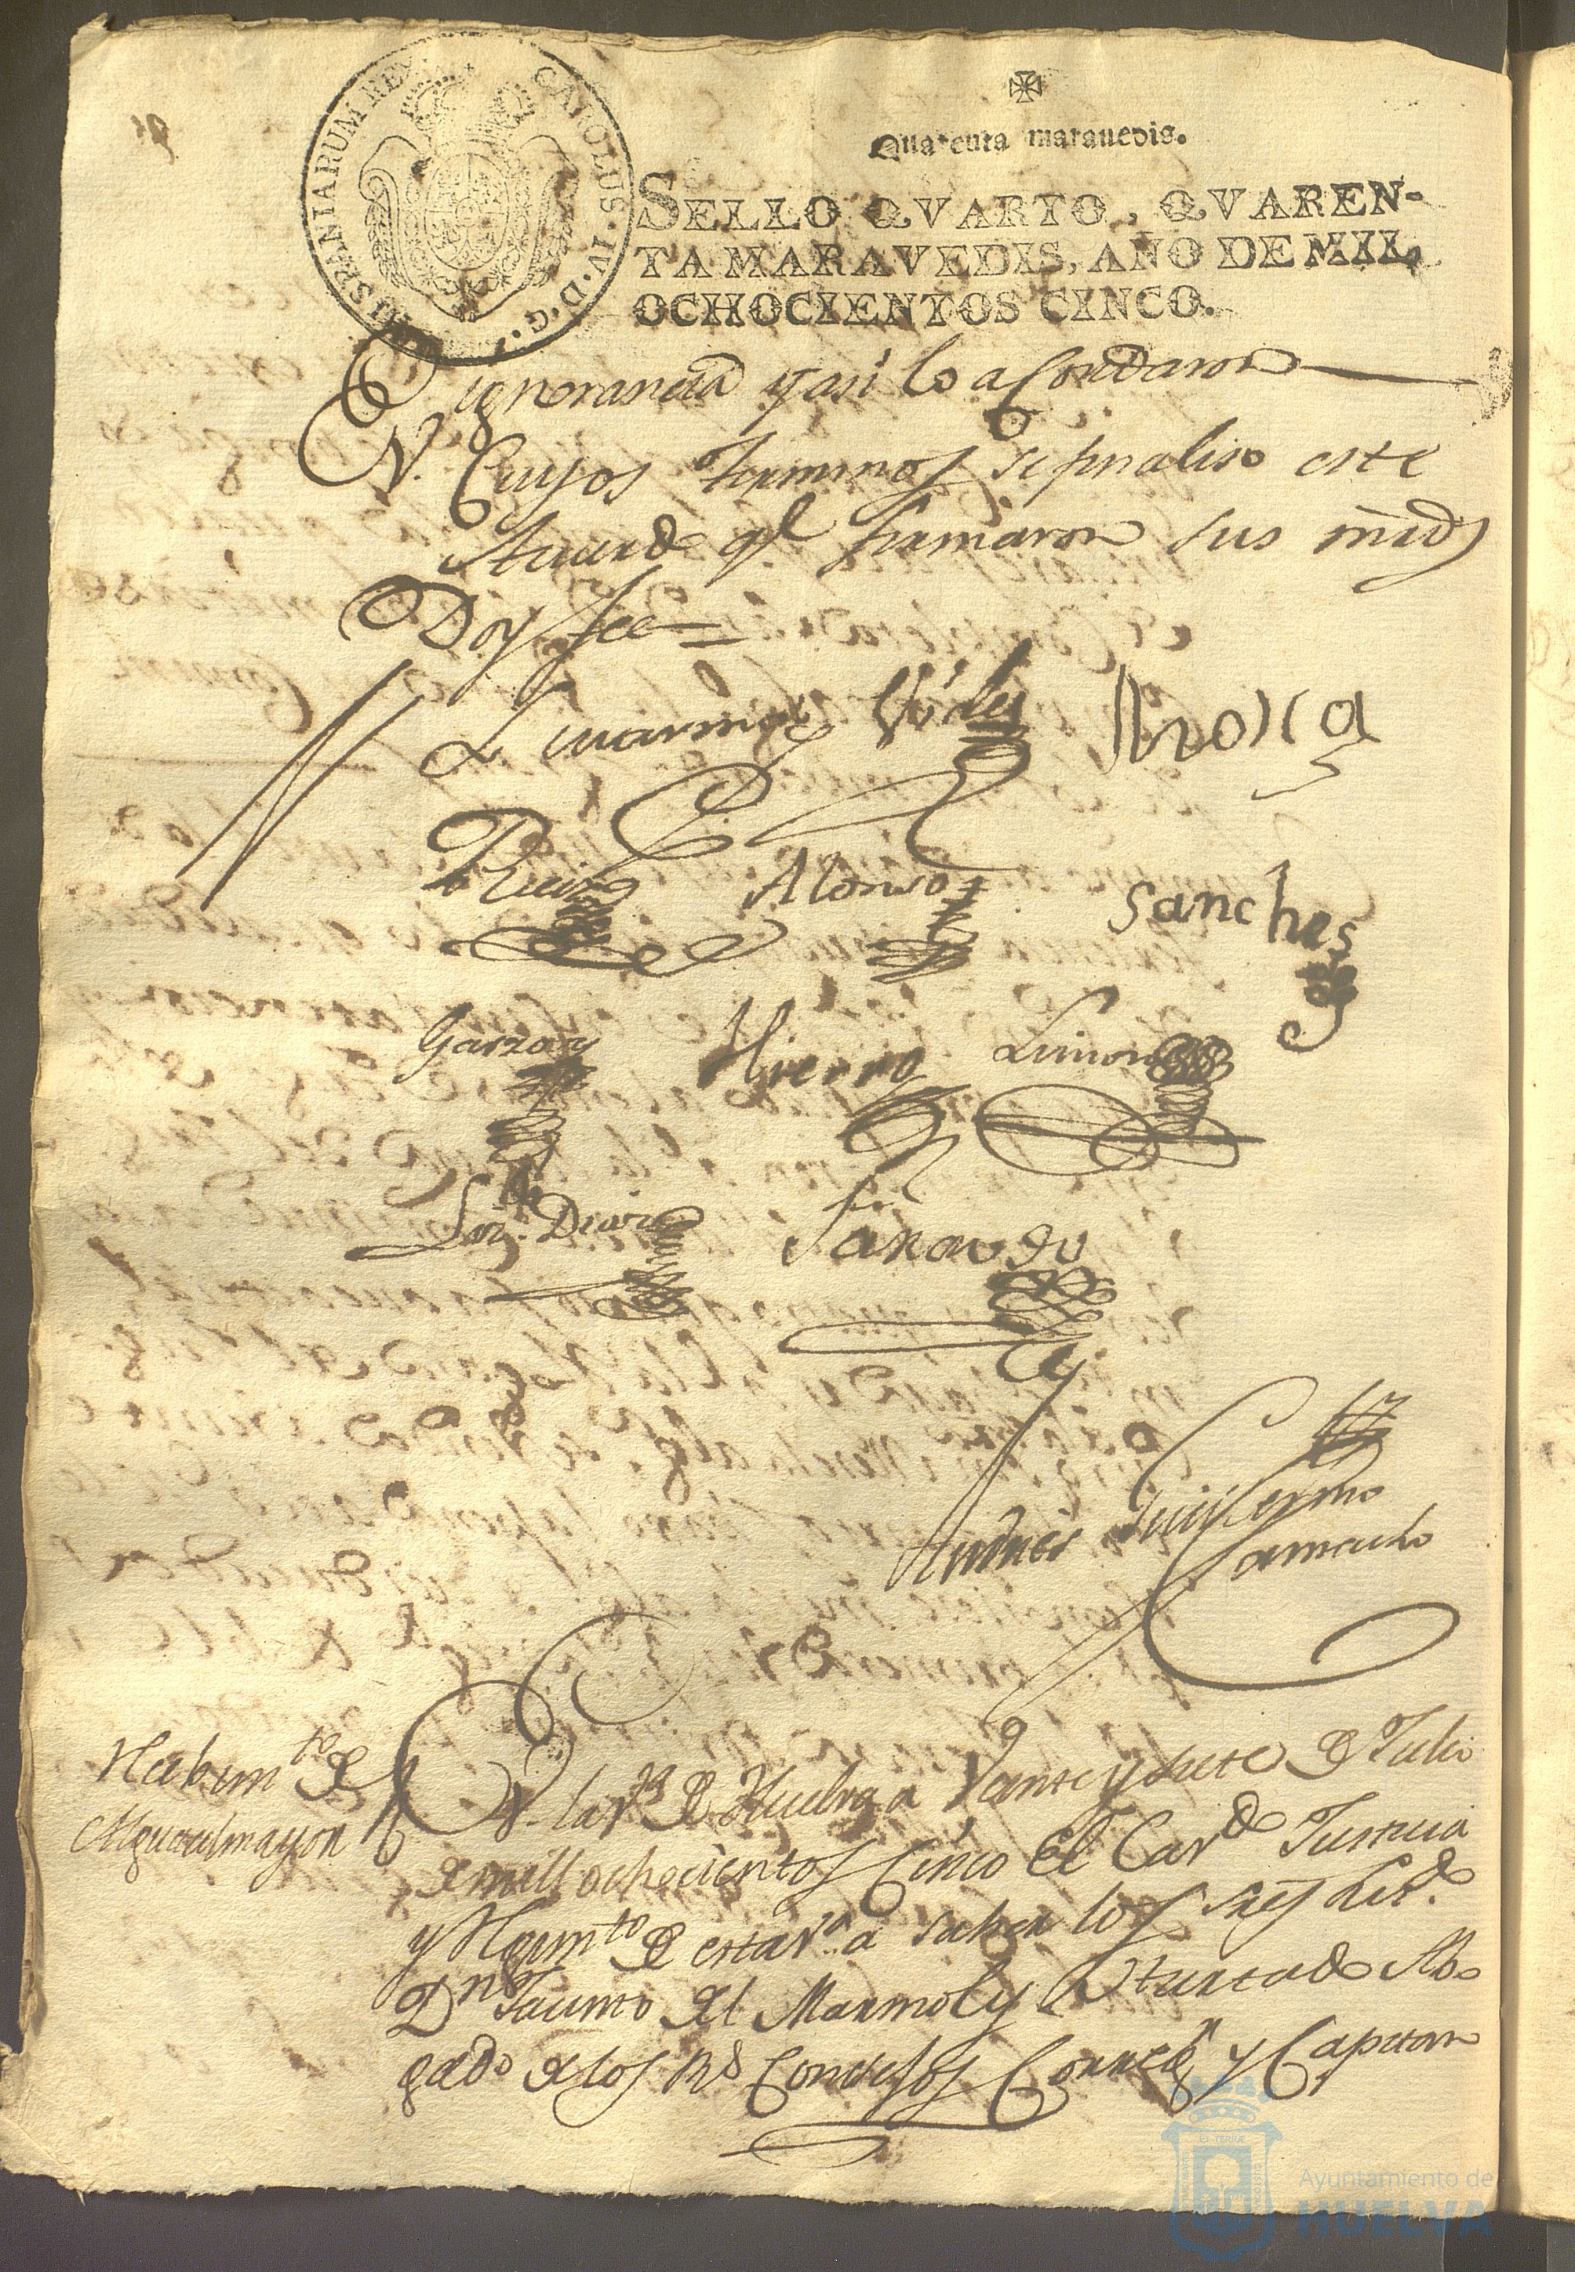 CAROLUS · IV · D · G · HISPANIARUM REX
Quarenta maravedis.
SELLO QVARTO, QVAREN-
TA MARAVEDIS, AÑO DE MIL
OCHOCIENTOS CINCO.
ignorancia y asi lo acordaron
EN. Cuyos terminos se finaliso este
Acuerdo qe firmaron sus mrds
Doy fee =
L. Marmol Vides Mora
Ruiz Alonso Sanches
Garzon Hierro Limon
Diaz
Andres Guillermo
Camacho
Nabimto de
Alguacil mayor
EN. la va de Huelva a Vante y siete de Julio
de mill ochocientos Cinco el Cavdo Justicia
y Regimto de esta va a saber los sres Licdo
Dn Jacinto del Marmol y Hurtado Abo-
gado de los Rs Consejos Corregr y Capitan
Ayuntamiento de
HUELVA